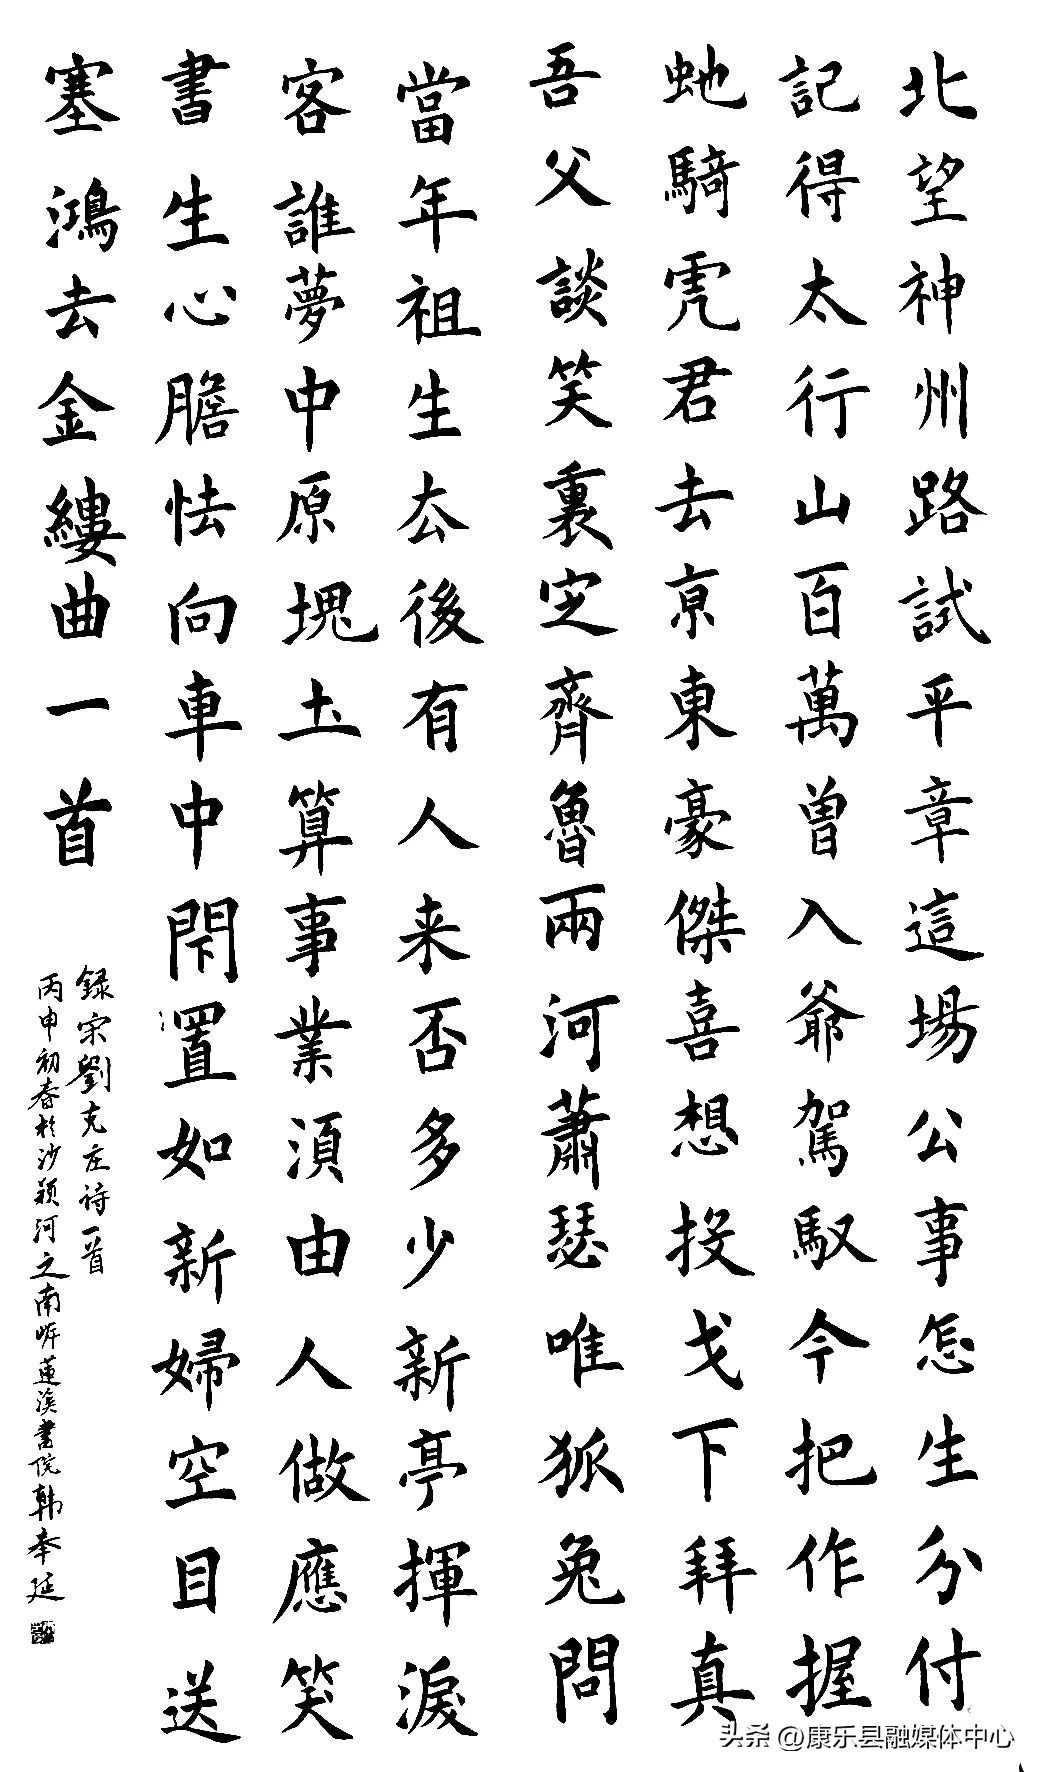 北望神州路試平章這場公事怎生分付
記得太行山百萬曾入爺駕馭今把作握
虵騎虎君去亰東豪傑喜想投戈下拜真
吾父談笑裏定齊魯兩河蕭瑟唯狐兔問
當年祖生去後有人来否多少新亭揮淚
客誰夢中原塊土算事業須由人做應笑
書生心膽怯向車中閇置如新婦空目送
塞鴻去金縷曲一首
録宋劉克庄诗一首
丙申初春於沙颍河之南岸蓮溪書院韩奉延
头条 @康乐县融媒体中心